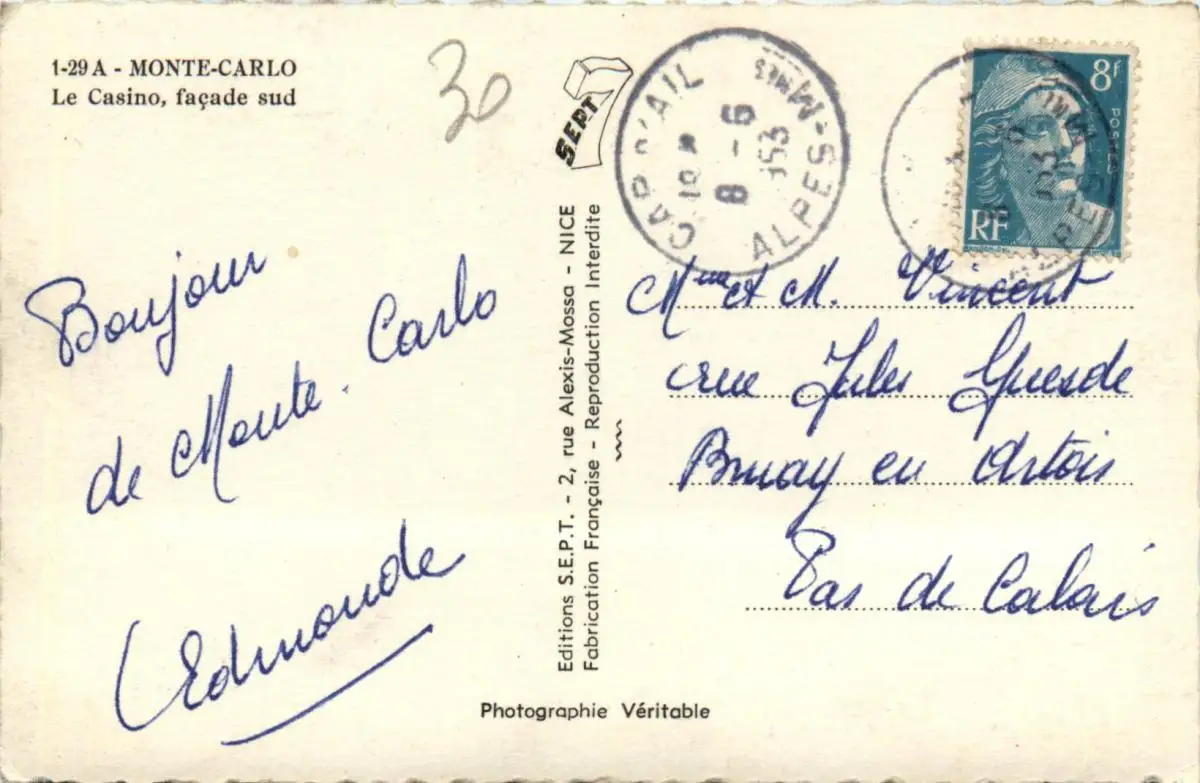 1-29 A - MONTE-CARLO
Le Casino, façade sud
30
SEPT
CAP D'AIL
18H
8 - 6
1953
ALPES-MMES
8F
POSTES
RF
Bonjour
de Monte-Carlo
Edmonde
Editions S.E.P.T. - 2, rue Alexis-Mossa - NICE
Fabrication Française - Reproduction Interdite
Mme et M. Vincent
rue Jules Guesde
Bruay en Artois
Pas de Calais
Photographie Véritable